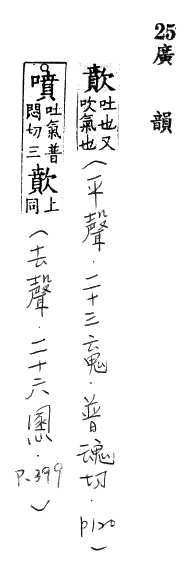 25廣韻
歕吐也又吹氣也(平聲．二十三䰟．普魂切．p120)
噴吐氣普悶切三歕上同(去聲．二十六慁．p.399)